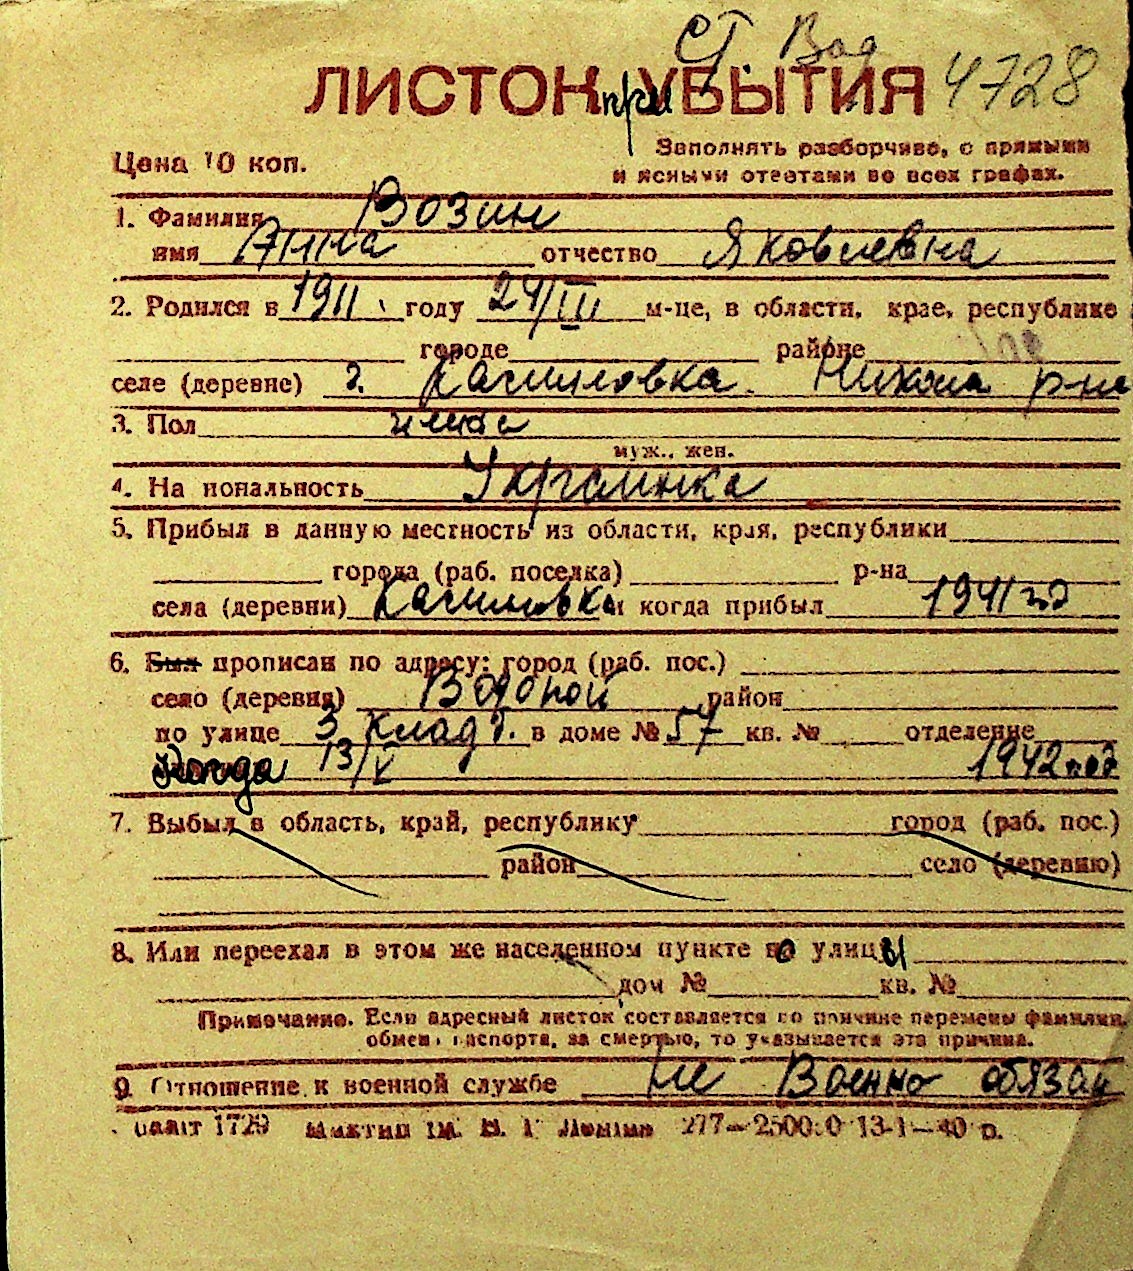 Ст. Вод
ЛИСТОК при УБЫТИЯ 4728
Цена 10 коп.
Заполнять разборчиво, с прямыми
и ясными ответами во всех графах.
1. Фамилия Возин
имя Анна отчество Яковлевна
2. Родился в 1911 году 24/III м-це, в области, крае, республике
городе районе
селе (деревне) г. Касиловка. Никола р-на
3. Пол
муж., жен.
4. Национальность Украинка
5. Прибыл в данную местность из области, края, республики
города (раб. поселка) р-на
села (деревни) Касиловка и когда прибыл 1941 год
6. Был прописан по адресу: город (раб. пос.)
село (деревня) Водопой район
по улице 3 Клад в доме № 57 кв. № отделение
Когда 13/V 1942 год
7. Выбыл в область, край, республику город (раб. пос.)
район село (деревню)
8. Или переехал в этом же населенном пункте по улицы
дом № кв. №
Примечание. Если адресный листок составляется по причине перемены фамилии,
обмен паспорта, за смертью, то указывается эта причина.
9. Отношение к военной службе не Военно обязан
1729 277—2500.0 13-1—40 р.